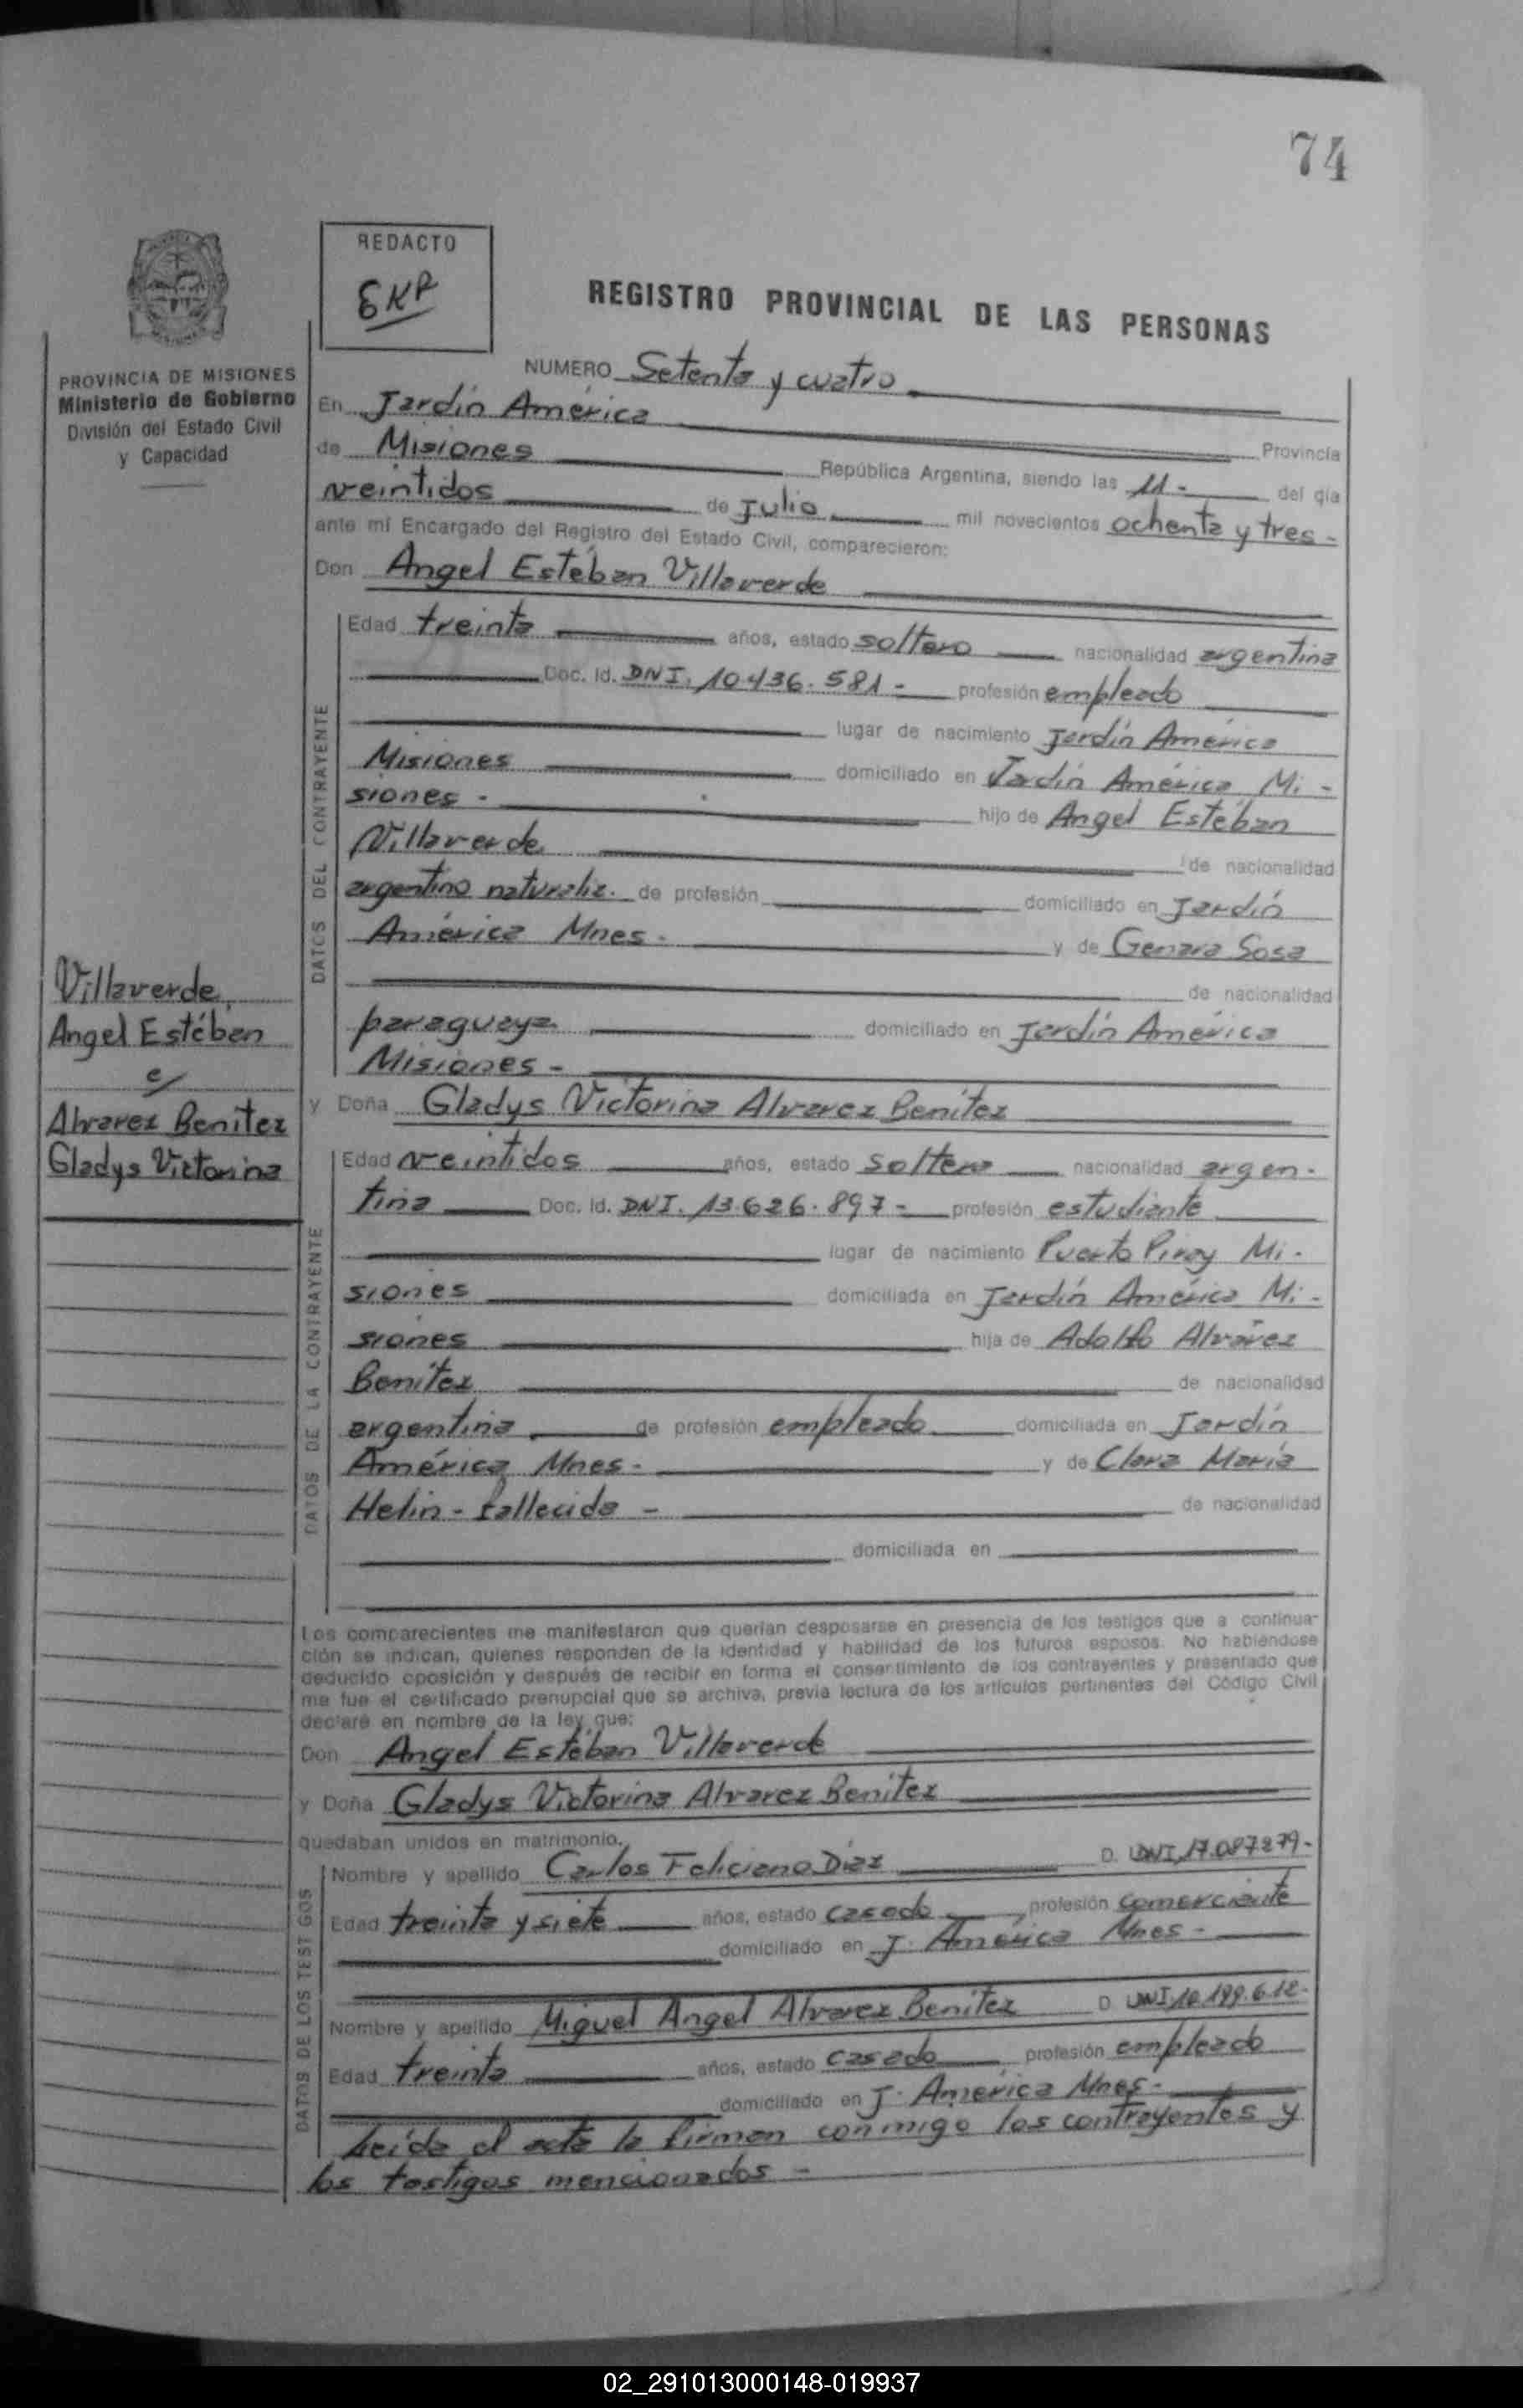 74
REDACTO
REGISTRO PROVINCIAL DE LAS PERSONAS
PROVINCIA DE MISIONES
Ministerio de Gobierno
División del Estado Civil
y Capacidad
NUMERO Setenta y cuatro
En Jardín América Provincia
de Misiones República Argentina, siendo las 11- del día
veintidos de Julio mil novecientos ochenta y tres-
ante mi Encargado del Registro del Estado Civil, comparecieron:
Don Angel Estéban Villaverde
DATOS DEL CONTRAYENTE
Edad treinta años, estado soltero nacionalidad argentina
Doc. Id. DNI. 10.436.581- profesión empleado
lugar de nacimiento Jardín América
Misiones domiciliado en Jardín América Mi-
siones- hijo de Angel Estéban
Villaverde de nacionalidad
argentino naturaliz. de profesión domiciliado en Jardín
América Mnes- y de Genara Sosa
de nacionalidad
paraguaya domiciliado en Jardín América
Misiones-
Villaverde,
Angel Estéban
c/
Alvarez Benítez
Gladys Victorina
y Doña Gladys Victorina Alvarez Benítez
DATOS DE LA CONTRAYENTE
Edad veintidos años, estado soltera nacionalidad argen-
tina Doc. Id. DNI. 13.626.897- profesión estudiante
lugar de nacimiento Puerto Piray Mi-
siones domiciliada en Jardín América Mi-
siones hija de Adolfo Alvárez
Benítez de nacionalidad
argentina de profesión empleado domiciliada en Jardín
América Mnes- y de Clara María
Helin- fallecida- de nacionalidad
domiciliada en
Los comparecientes me manifestaron que querían desposarse en presencia de los testigos que a continua-
ción se indican, quienes responden de la identidad y habilidad de los futuros esposos. No habiéndose
deducido oposición y después de recibir en forma el consentimiento de los contrayentes y presentado que
me fue el certificado prenupcial que se archiva, previa lectura de los artículos pertinentes del Código Civil
declaré en nombre de la ley que:
Don Angel Estéban Villaverde
y Doña Gladys Victorina Alvarez Benítez
quedaban unidos en matrimonio.
DATOS DE LOS TESTIGOS
Nombre y apellido Carlos Feliciano Díaz D. DNI.17.087279-
Edad treinta y siete años, estado casado profesión comerciante
domiciliado en J. América Mnes-
Nombre y apellido Miguel Angel Alvarez Benítez D. DNI 10.199.612-
Edad treinta años, estado casado profesión empleado
domiciliado en J. América Mnes-
Leída el acta la firman conmigo los contrayentes y
los testigos mencionados-
02_291013000148-019937